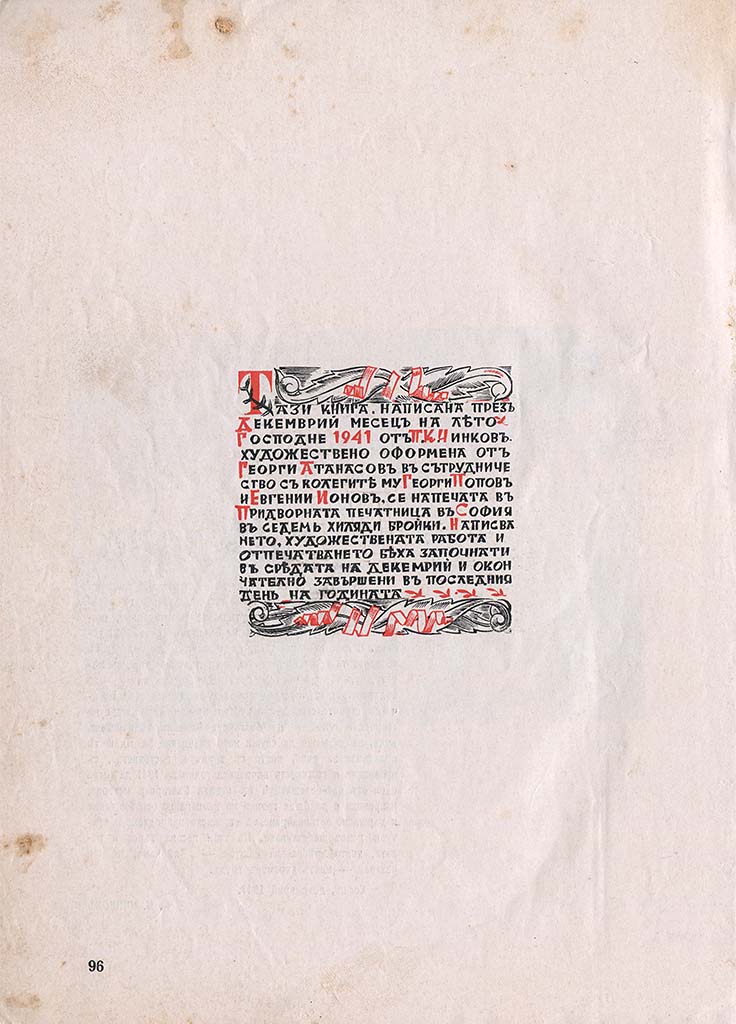 Тази книга, написана презъ
декемврий месецъ на лѣто
Господне 1941 отъ П.К. Чинковъ.
художествено оформена отъ
Георги Атанасовъ въ сътрудниче
ство съ колегитѣ му Георги Поповъ
и Евгении Ионовъ, се напечата въ
Придворната печатница въ София
въ седемь хиляди бройки. Написва
нето, художествената работа и
отпечатването бѣха започнати
въ срѣдата на декемрий и окон
чателно завършени въ последния
день на годината
96